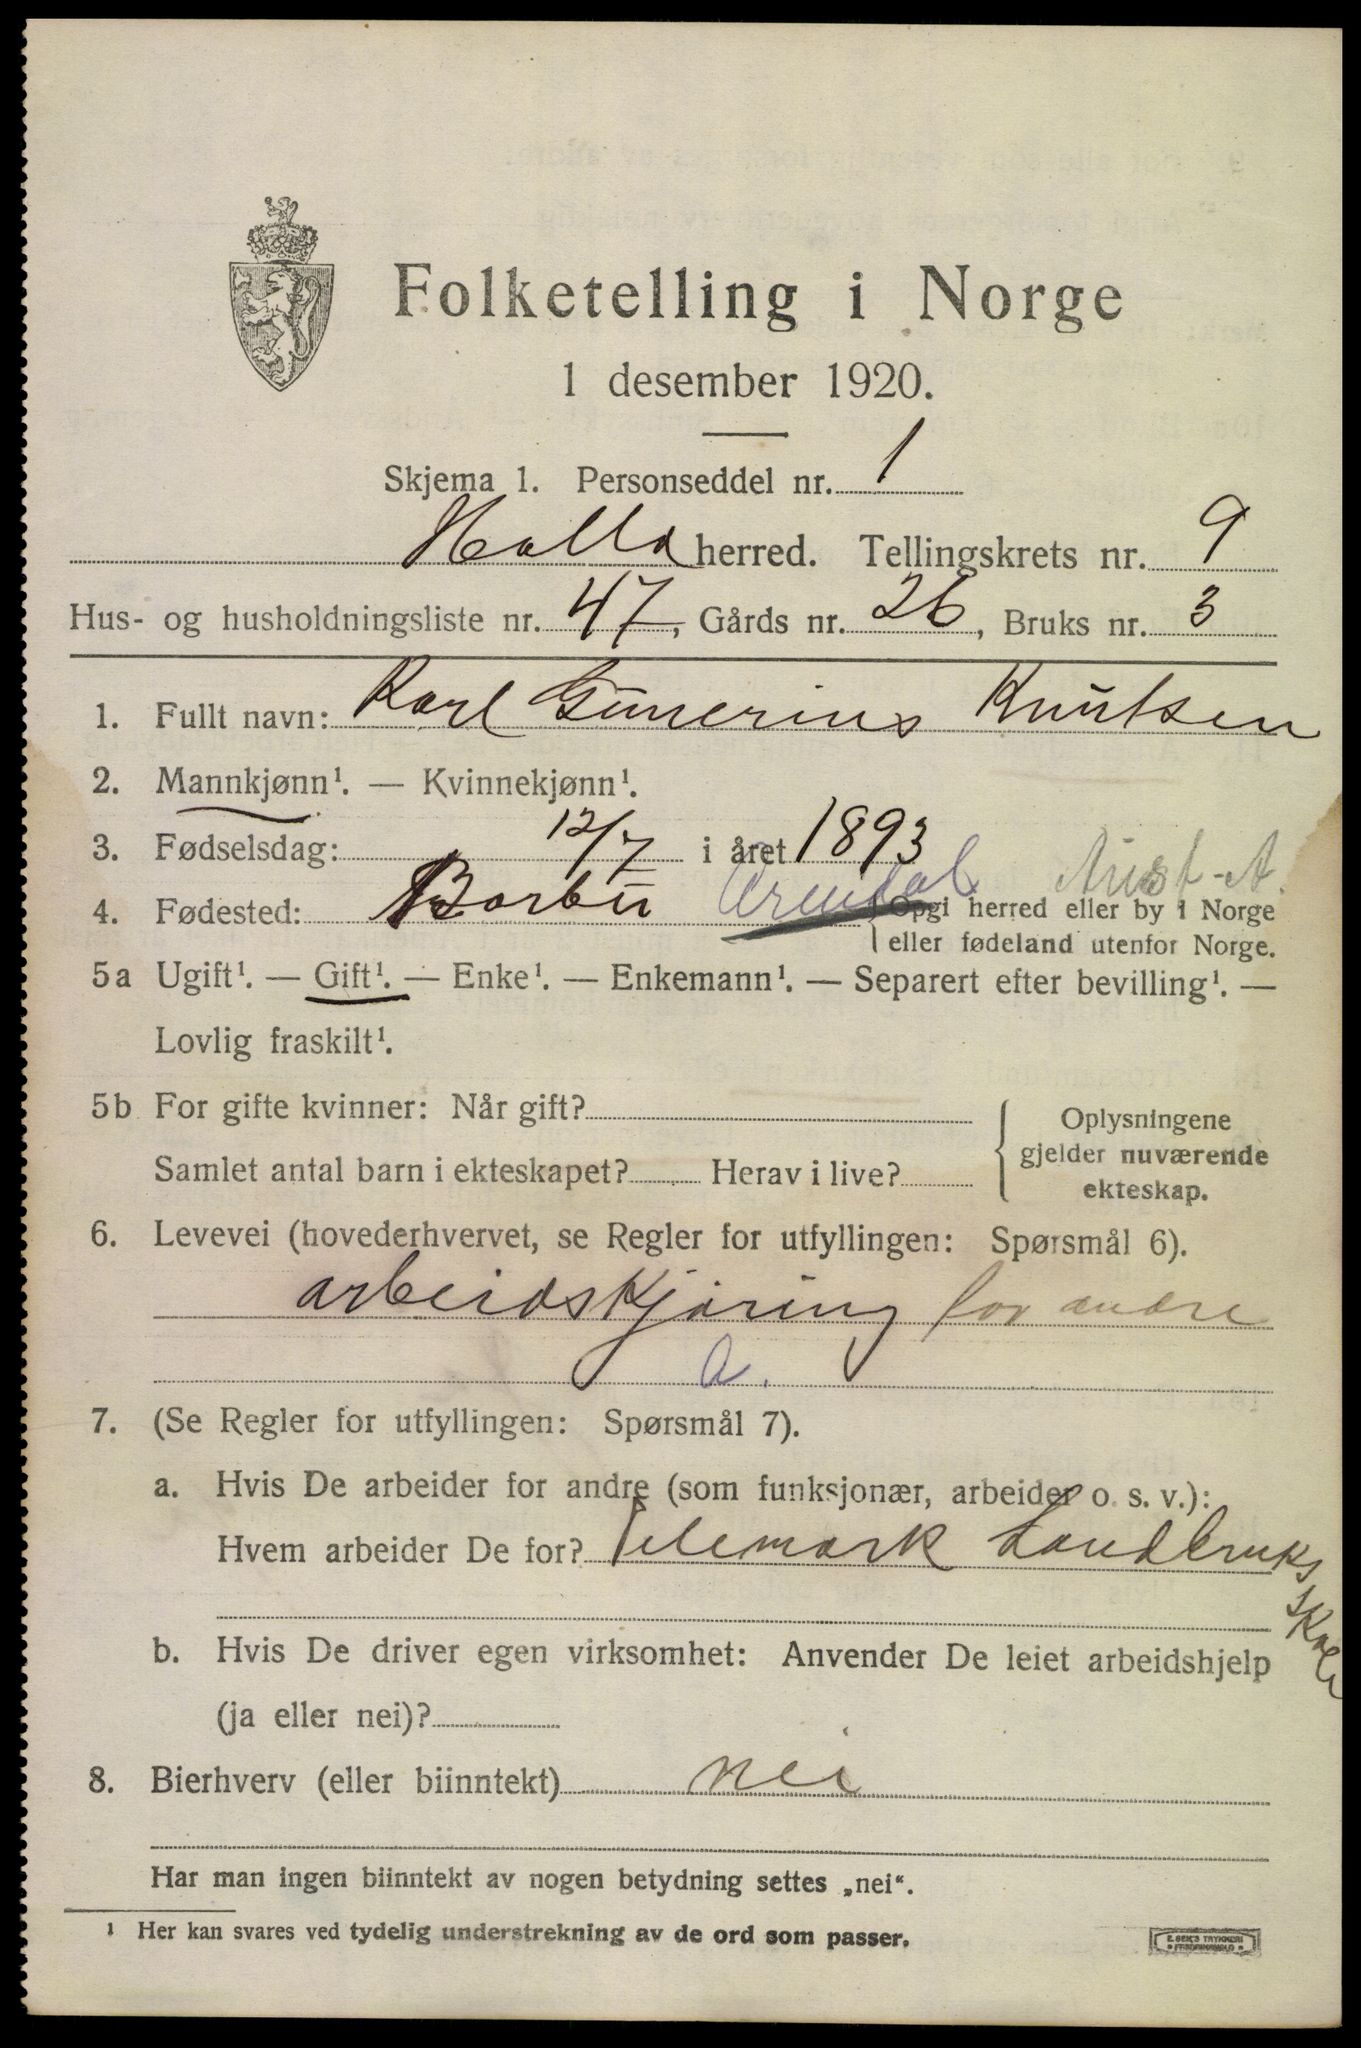 Folketelling i Norge
1 desember 1920.
Skjema 1. Personseddel nr. 1
Holla herred. Tellingskrets nr. 9
Hus- og husholdningsliste nr. 47, Gårds nr. 26, Bruks nr. 3
1. Fullt navn: Karl Gunerius Knutsen
2. Mannkjønn¹. — Kvinnekjønn¹.
3. Fødselsdag: 12/7 i året 1893
Aust-A.
4. Fødested: Barbu Arendal { Opgi herred eller by i Norge
eller fødeland utenfor Norge.
5a Ugift¹. — Gift¹. — Enke¹. — Enkemann¹. — Separert efter bevilling¹. —
Lovlig fraskilt¹.
5b For gifte kvinner: Når gift?
Samlet antal barn i ekteskapet? Herav i live?
{ Oplysningene
gjelder nuværende
ekteskap.
6. Levevei (hovederhvervet, se Regler for utfyllingen: Spørsmål 6).
arbeidskjøring for andre
a.
7. (Se Regler for utfyllingen: Spørsmål 7).
a. Hvis De arbeider for andre (som funksjonær, arbeider o. s. v.):
Hvem arbeider De for? Telemark Landbruks
skole
b. Hvis De driver egen virksomhet: Anvender De leiet arbeidshjelp
(ja eller nei)?
8. Bierhverv (eller biinntekt) nei
Har man ingen biinntekt av nogen betydning settes „nei“.
¹ Her kan svares ved tydelig understrekning av de ord som passer.